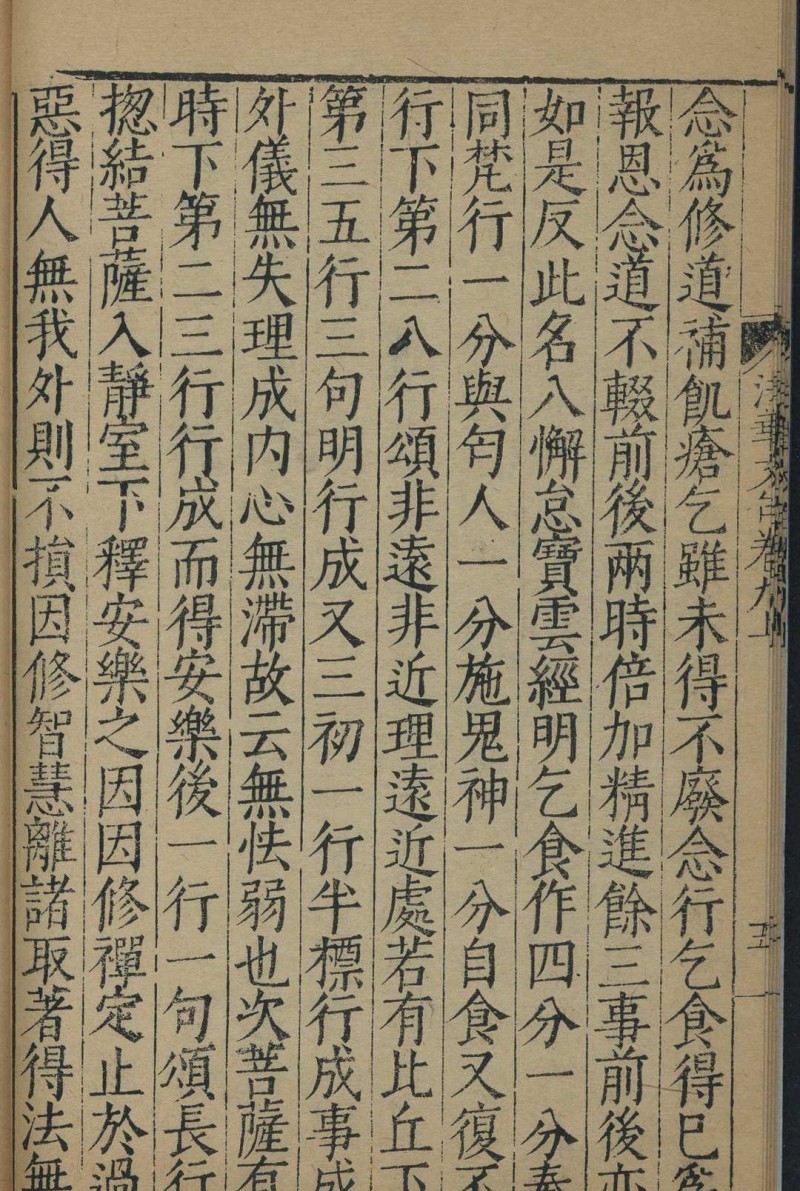 法華文句卷九上
五
念爲修道補飢瘡乞雖未得不廢念行乞食得已爲
報恩念道不輟前後兩時倍加精進餘三事前後亦
如是反此名八懈怠寶雲經明乞食作四分一分奉
同梵行一分與匄人一分施鬼神一分自食又復不
行下第二八行頌非遠非近理遠近處若有比丘下
第三五行三句明行成又三初一行半標行成事成
外儀無失理成内心無滯故云無怯弱也次菩薩有
時下第二三行行成而得安樂後一行一句頌長行
揔結菩薩入靜室下釋安樂之因因修禪定止於過
惡得人無我外則不損因修智慧離諸取著得法無